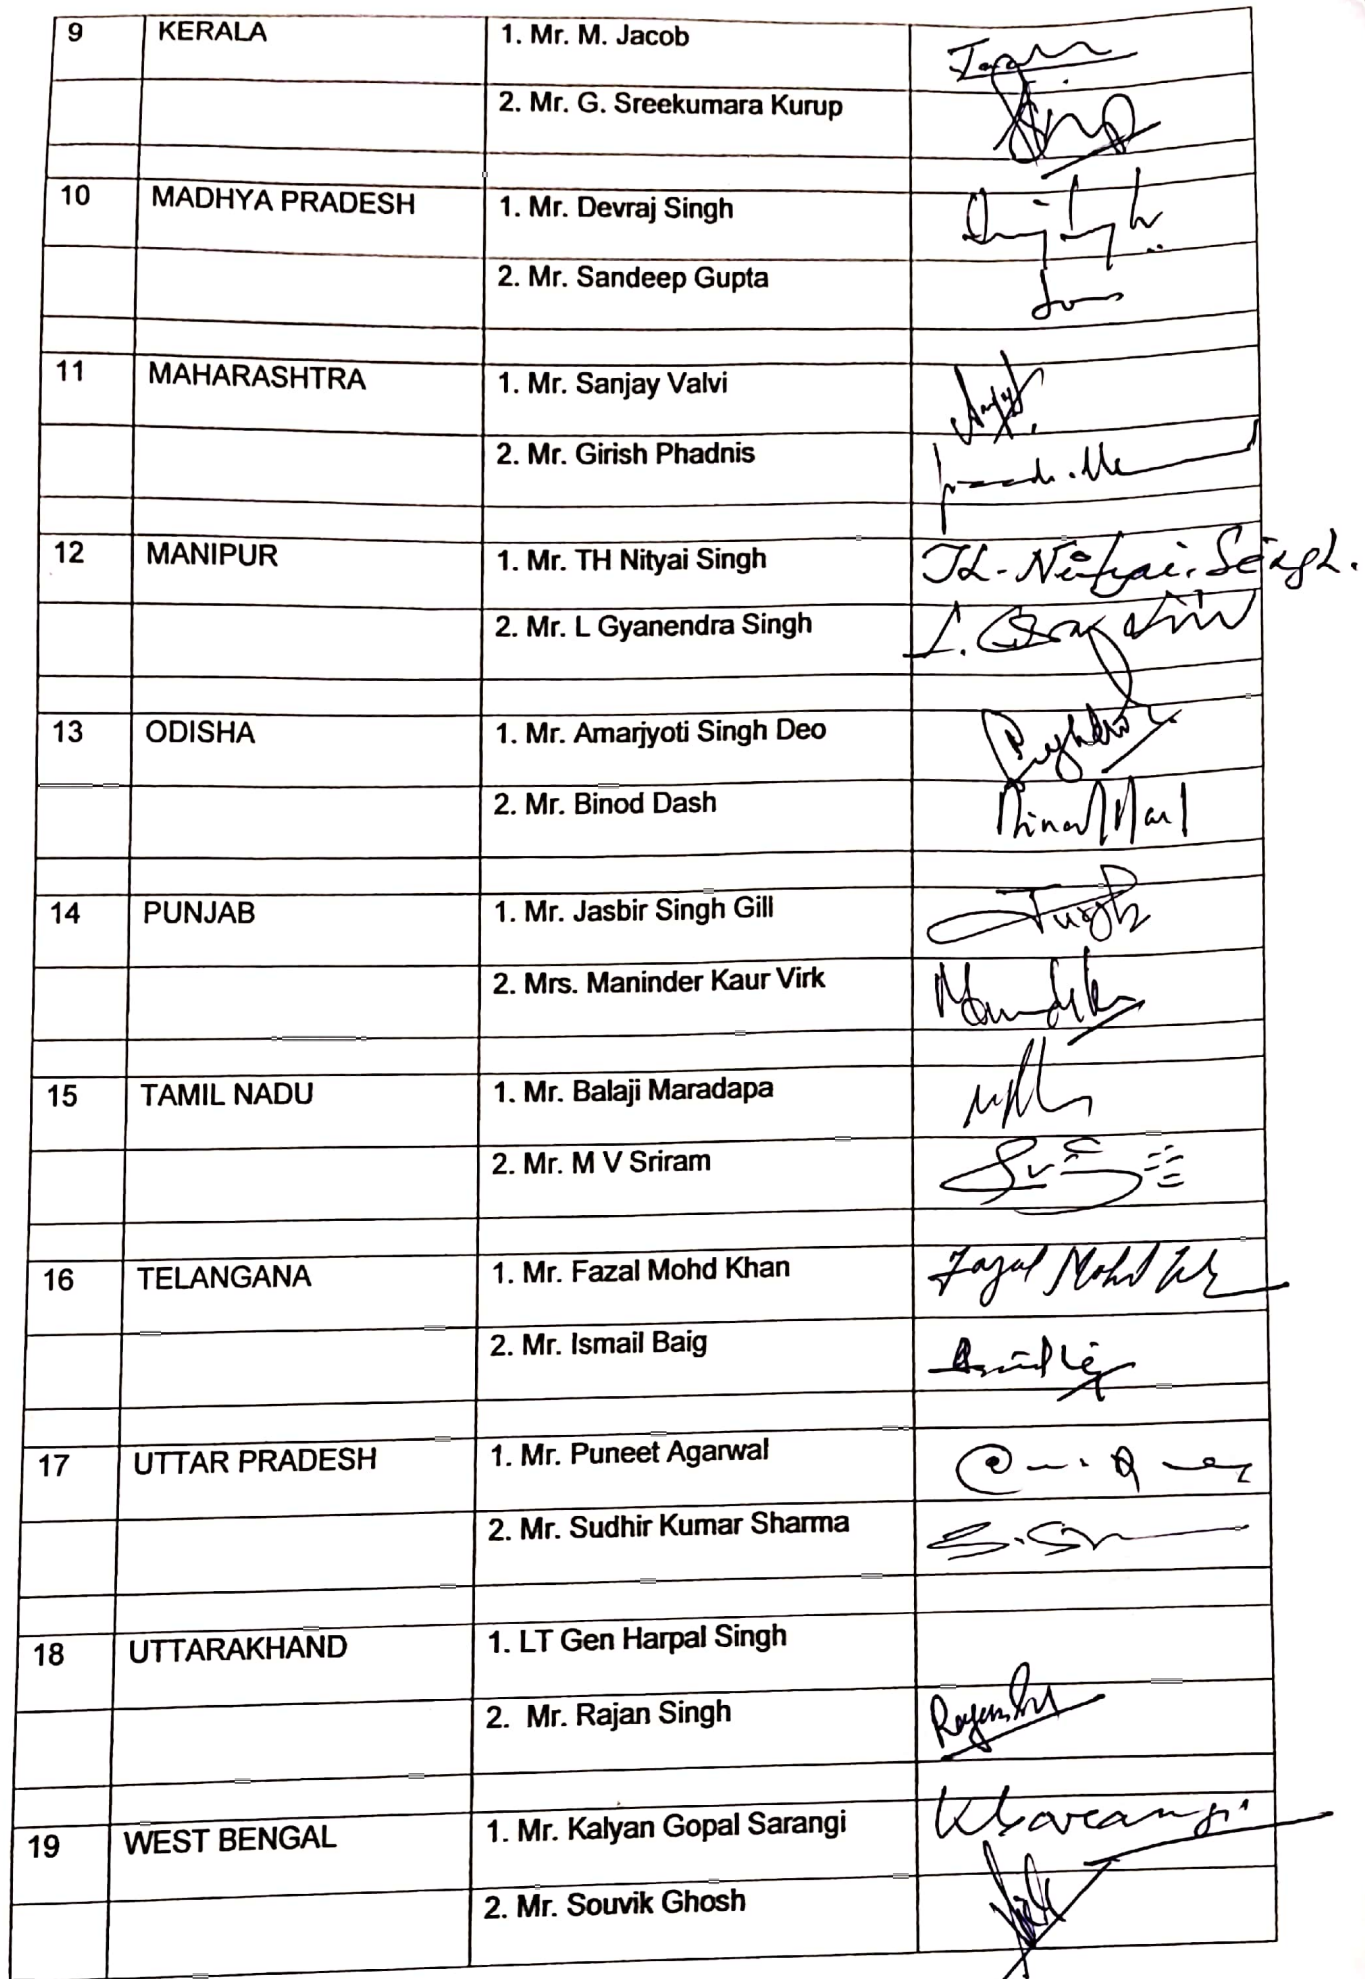 9 KERALA 1. Mr. M. Jacob
2. Mr. G. Sreekumara Kurup
10 MADHYA PRADESH 1. Mr. Devraj Singh
2. Mr. Sandeep Gupta
11 MAHARASHTRA 1. Mr. Sanjay Valvi
2. Mr. Girish Phadnis
12 MANIPUR 1. Mr. TH Nityai Singh
2. Mr. L Gyanendra Singh
13 ODISHA 1. Mr. Amarjyoti Singh Deo
2. Mr. Binod Dash
14 PUNJAB 1. Mr. Jasbir Singh Gill
2. Mrs. Maninder Kaur Virk
15 TAMIL NADU 1. Mr. Balaji Maradapa
2. Mr. M V Sriram
16 TELANGANA 1. Mr. Fazal Mohd Khan Fazal Mohd
2. Mr. Ismail Baig
17 UTTAR PRADESH 1. Mr. Puneet Agarwal
2. Mr. Sudhir Kumar Sharma
18 UTTARAKHAND 1. LT Gen Harpal Singh
2. Mr. Rajan Singh
19 WEST BENGAL 1. Mr. Kalyan Gopal Sarangi
2. Mr. Souvik Ghosh